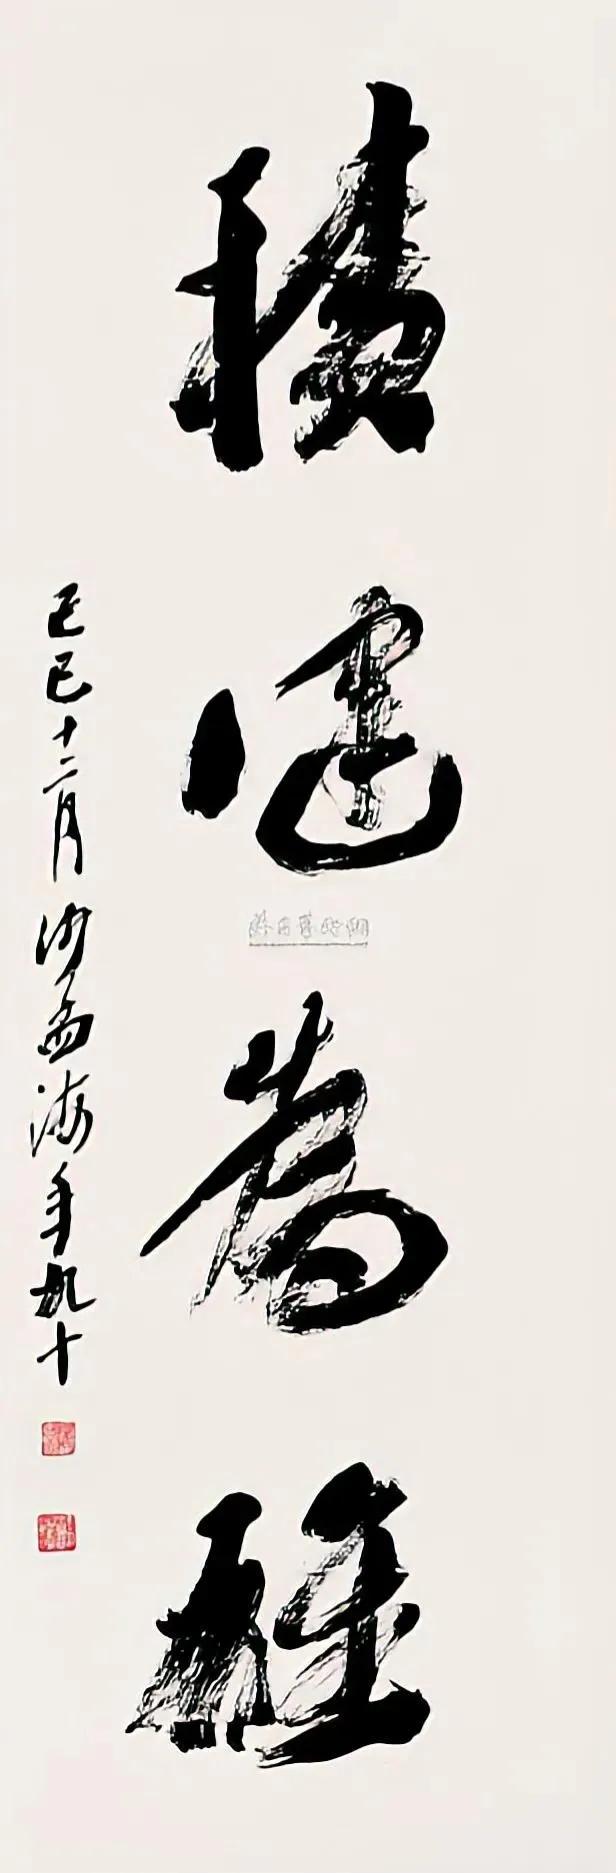 積健為雄
己巳十二月沙孟海年九十